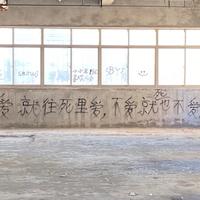 SBYT
爱就往死里爱,不爱就死也不爱